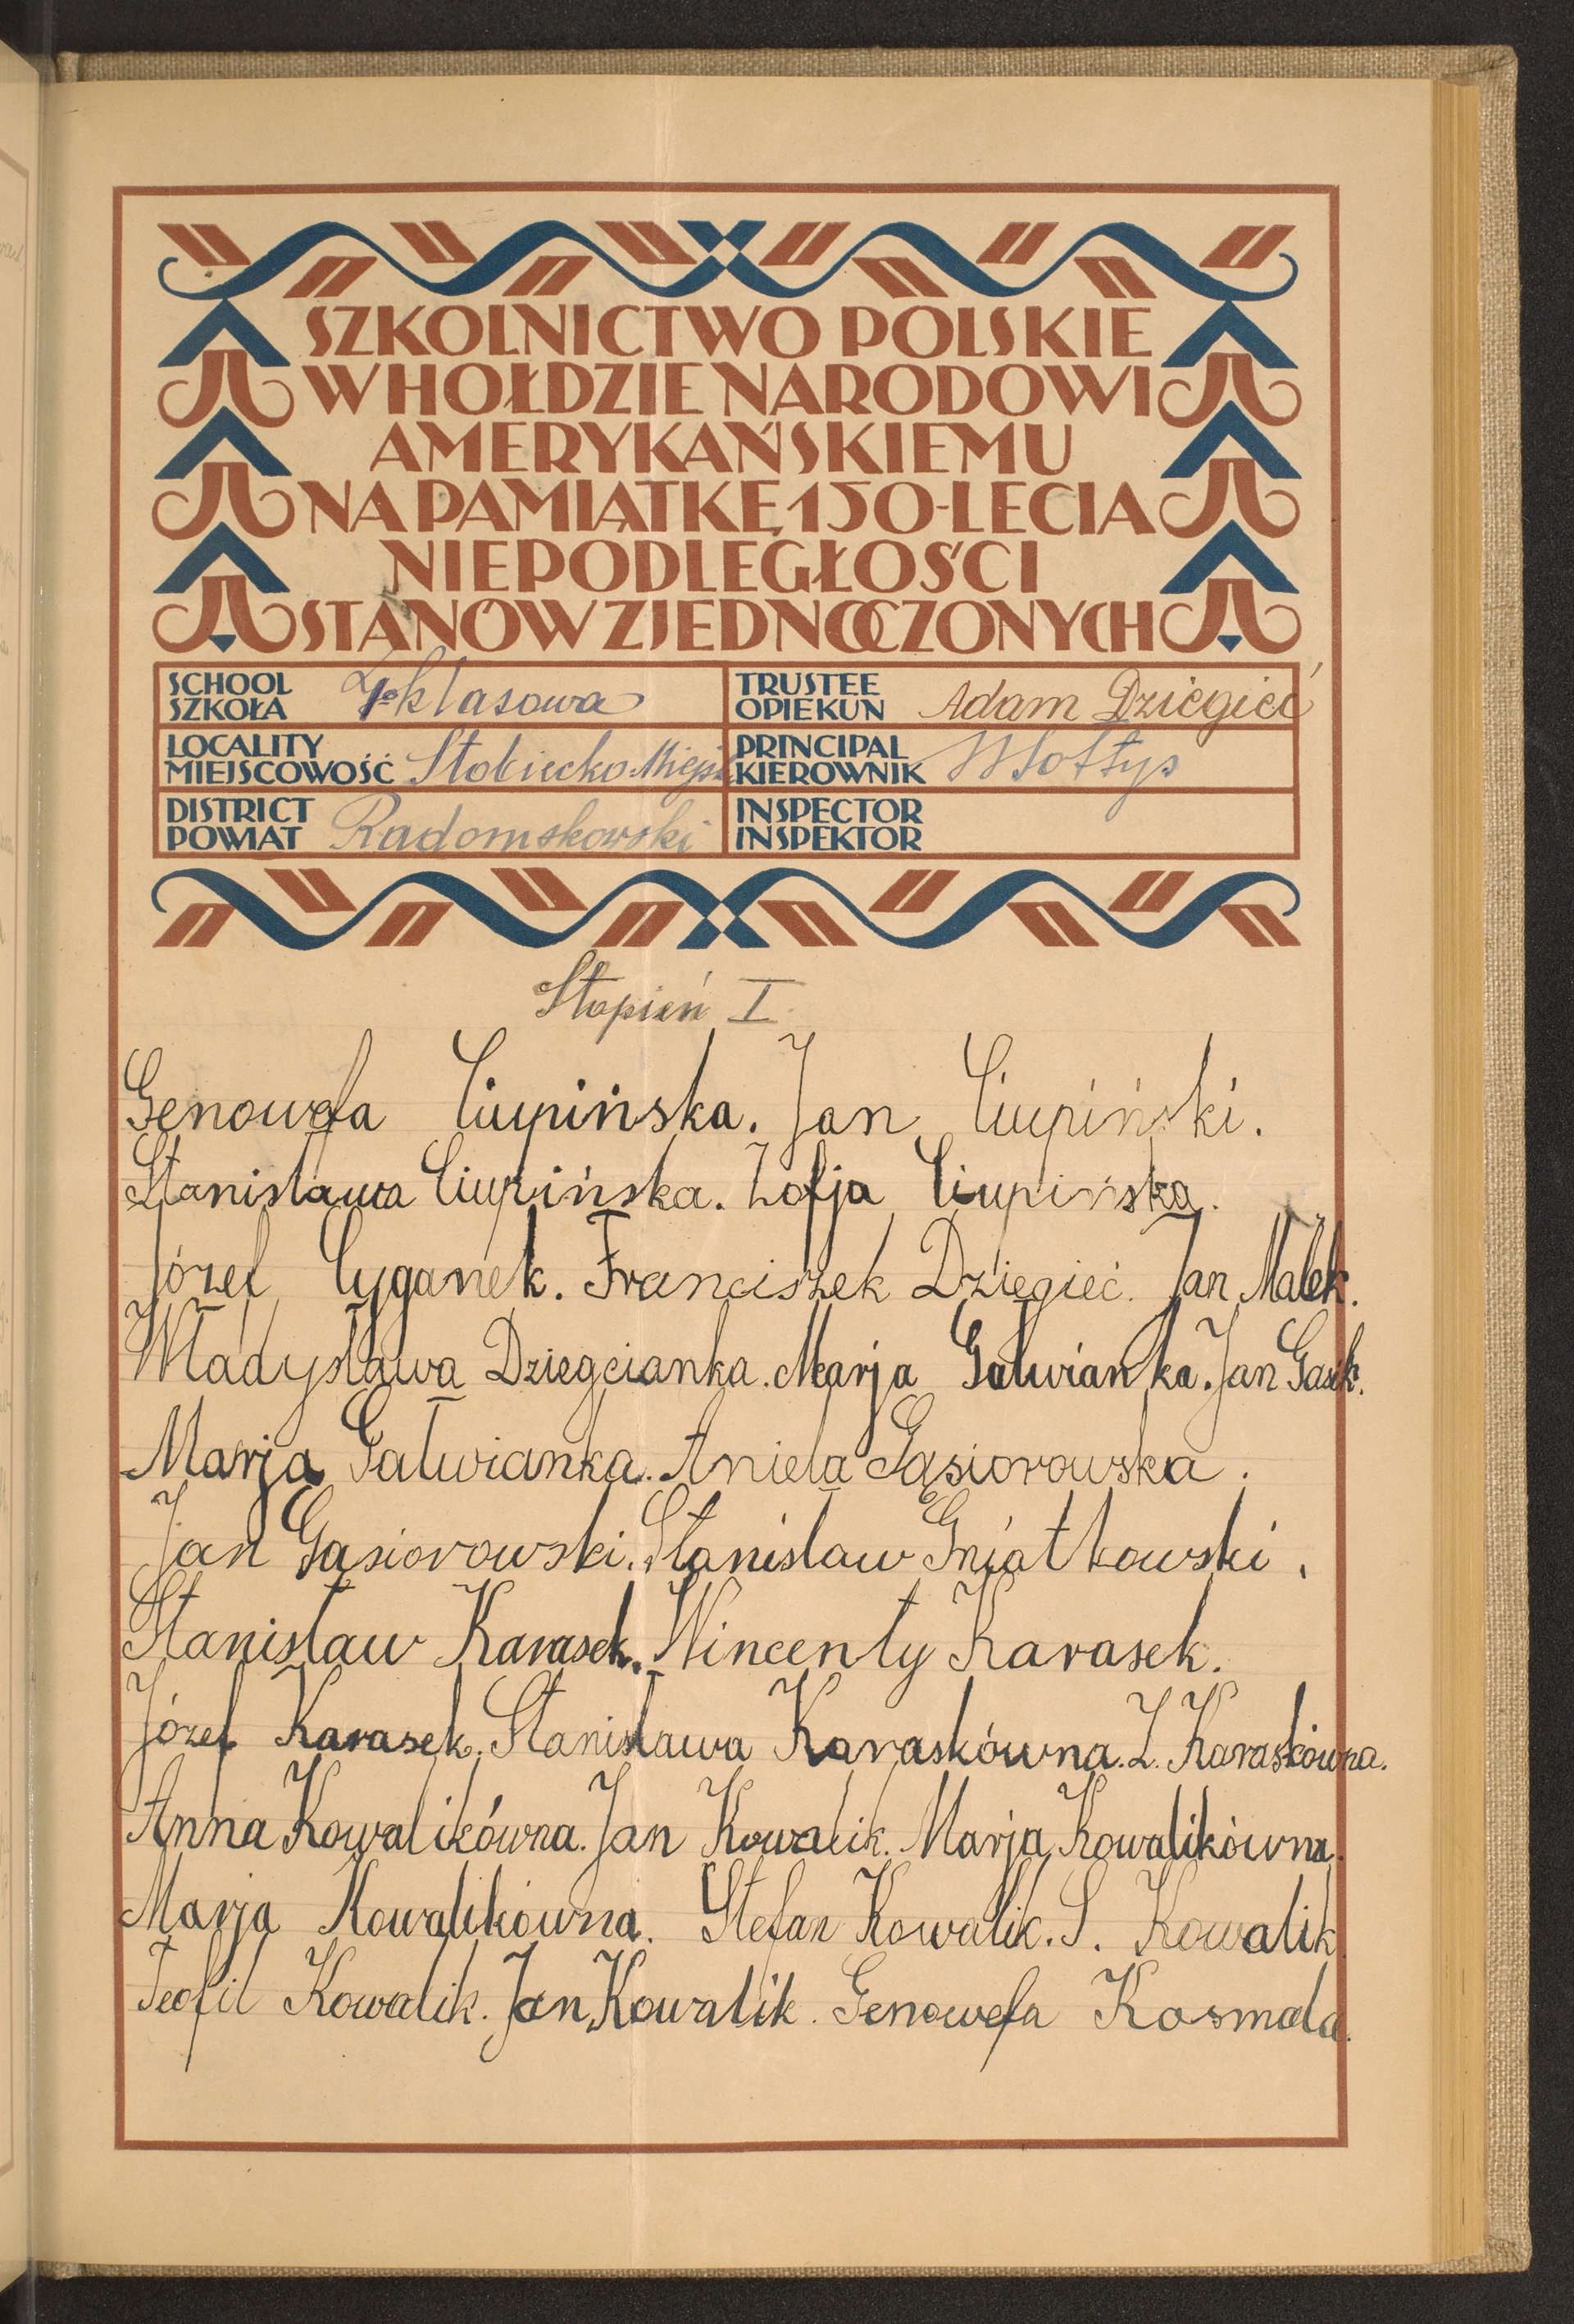 SZKOLNICTWO POLSKIE
W HOŁDZIE NARODOWI
AMERYKAŃSKIEMU
NA PAMIĄTKĘ 150-LECIA
NIEPODLEGŁOŚCI
STANÓW ZJEDNOCZONYCH
SCHOOL
SZKOŁA klasowa
TRUSTEE
OPIEKUN Adam Dzięgieć
LOCALITY
MIEJSCOWOŚĆ Stobiecko Miejs
PRINCIPAL
KIEROWNIK WSołtys
DISTRICT
POWIAT Radomskowski
INSPECTOR
INSPEKTOR
Stopień I
Genowefa Ciupińska. Jan Ciupiński.
Stanisława Ciupińska. Zofja Ciupińska.
Józef Cyganek. Franciszek Dzięgieć. Jan Małek.
Władysława Dziegcianka. Marja Galwianka. Jan Gasik.
Marja Galwianka. Aniela Gąsiorowska.
Jan Gąsiorowski. Stanisław Gniatkowski.
Stanisław Karasek. Wincenty Karasek.
Józef Karasek. Stanisława Karaskówna. Z. Karaskówna.
Anna Kowalikówna. Jan Kowalik. Marja Kowalikówna.
Marja Kowalikówna. Stefan Kowalik. S. Kowalik
Teofil Kowalik. Jan Kowalik. Genowefa Kosmala.